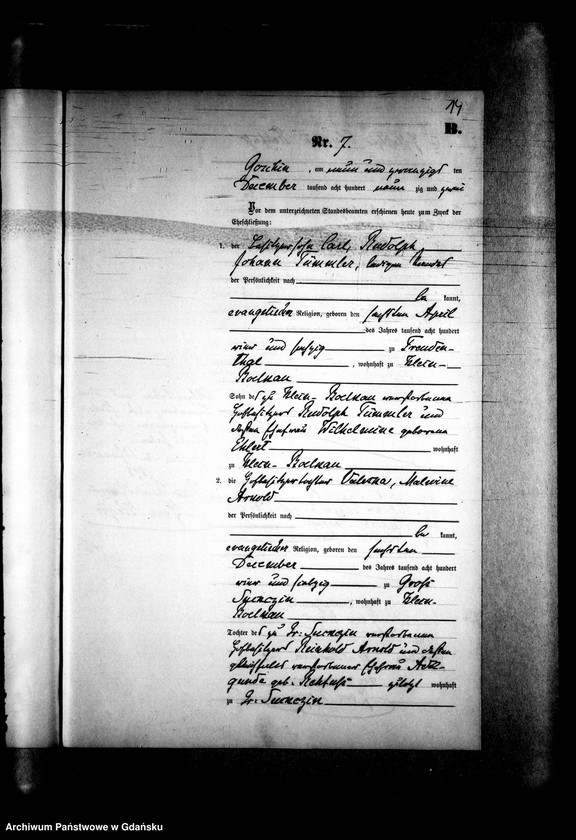 14
B.
Nr. 7.
Goschin, am neun und zwanzigsten
December tausend acht hundert neun zig und zwei
Vor dem unterzeichneten Standesbeamten erschienen heute zum Zweck der
Eheschließung:
1. der Besitzersohn Carl, Rudolph,
Johann Tümmler, ledigen Standes
der Persönlichkeit nach
be kannt,
evangelischer Religion, geboren den sechsten April
des Jahres tausend acht hundert
vier und sechzig zu Freuden-
thal, wohnhaft zu Klein-
Boelkau
Sohn des zu Klein-Boelkau verstorbenen
Hofbesitzers Rudolph Tümmler und
dessen Ehefrau Wilhelmine geborene
Ehlert wohnhaft
zu Klein-Boelkau
2. die Hofbesitzertochter Valeska, Malwine
Arnold
der Persönlichkeit nach
be kannt,
evangelischer Religion, geboren den
December des Jahres tausend acht hundert
vier und siebzig zu Groß
Suckczin, wohnhaft zu Klein-
Boelkau
Tochter des zu Gr. Suckczin verstorbenen
Hofbesitzers Reinhold Arnold und dessen
gleichfalls verstorbener Ehefrau Adel-
gunde geb. zuletzt wohnhaft
zu Gr. Suckczin
Archiwum Państwowe w Gdańsku